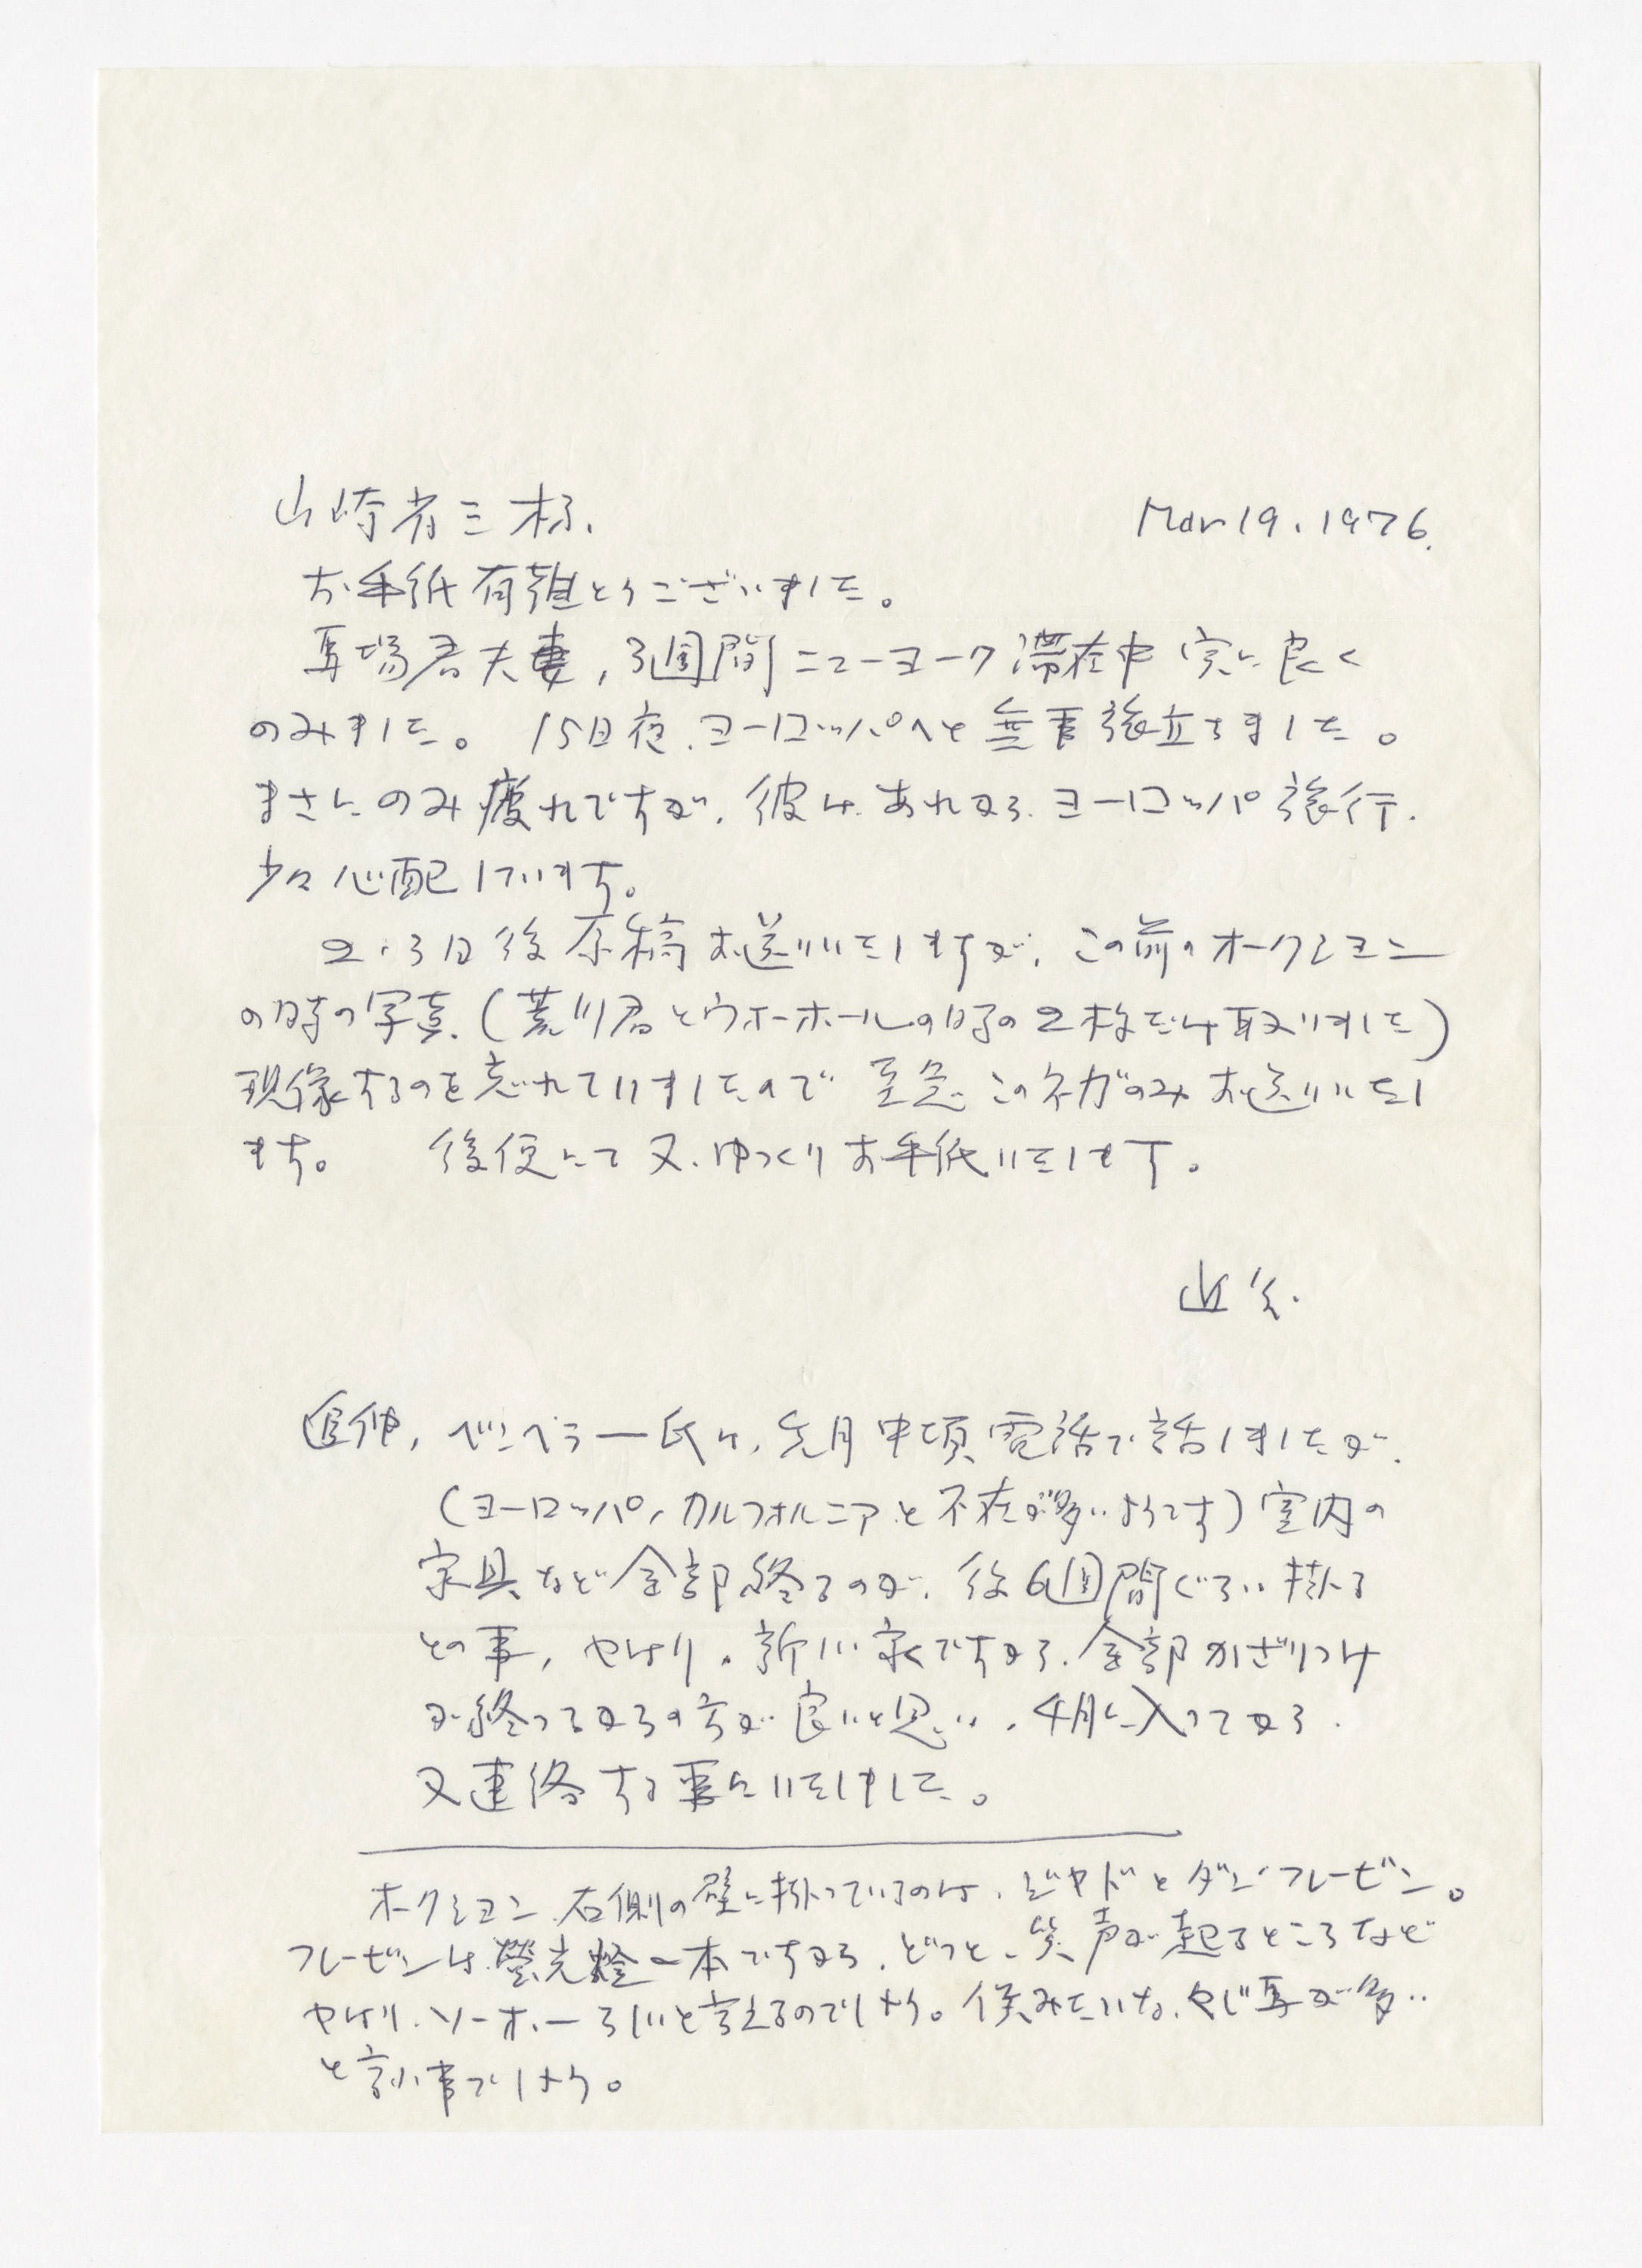 山崎省三様、
Mar 19. 1976.
お手紙有難とうございました。
馬場君夫妻，3週間ニューヨーク滞在中 実に良く
のみました。 15日夜、ヨーロッパへと無事旅立ちました。
まさにのみ疲れですが、彼は、あれから、ヨーロッパ旅行、
少々心配しています。
2・3日後原稿お送りいたしますが、この前のオークション
の時の写真、(荒川君とウォーホールの時の2枚だけ取りました)
現像するのを忘れていましたので 至急 このネガのみお送りいたし
ます。 後便にて又、ゆっくりお手紙いたします。
追伸，ベンベラー氏は，先月中頃電話で話しましたが、
(ヨーロッパ，カルフォルニアと不在が多いようです) 室内の
家具など全部終るのが、後6週間ぐらい掛る
との事，やはり、新しい家ですから、全部かざりつけ
が終ってからの方が良いと思い、4月に入ってから、
又連絡する事にいたしました。
オークション、右側の壁に掛っているのは、ジャドとダン・フレービン。
フレービンは、螢光燈一本ですから、どっと、笑声が起るところなど
やはり、ソーホーらしいと言えるのでしょう。僕みたいな、やじ馬が多い
と言う事でしょう。